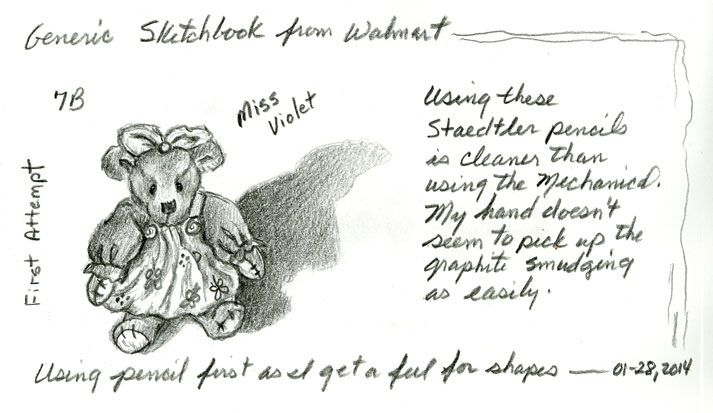 Generic Sketchbook from Walmart
7B
Miss
Violet
First Attempt
Using these
Staedtler pencils
is cleaner than
using the Mechanical.
My hand doesn't
seem to pick up the
graphite smudging
as easily.
Using pencil first as I get a feel for shapes — 01-28, 2014